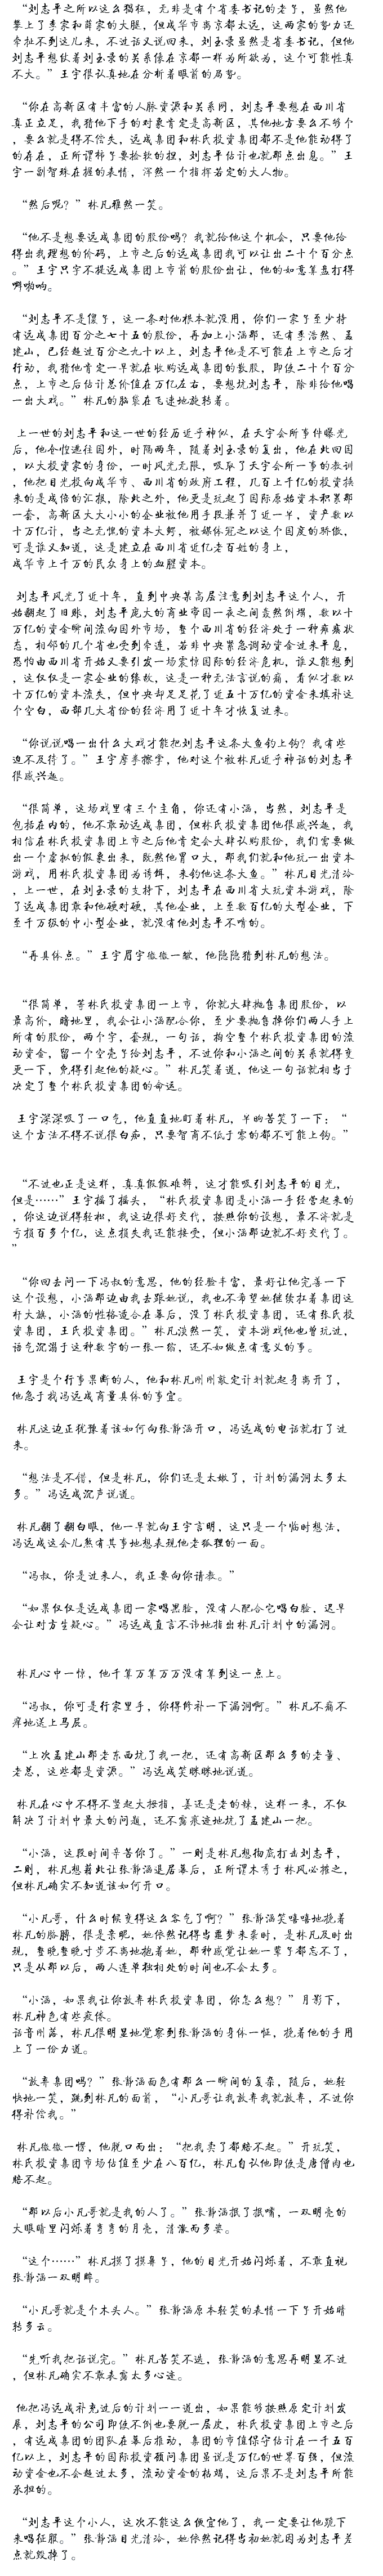 “刘志平之所以这么猖狂，无非是有个省委书记的老子，虽然他
攀上了李家和薛家的大腿，但成华市离京都太远，这两家的势力还
牵扯不到这儿来，不过话又说回来，刘玉录虽然是省委书记，但他
刘志平想仗着刘玉录的关系像在京都一样为所欲为，这个可能性真
不大。”王宇很认真地在分析着眼前的局势。
“你在高新区有丰富的人脉资源和关系网，刘志平要想在西川省
真正立足，我猜他下手的对象肯定是高新区，其他地方要么不够个
，要么就是得不偿失，远成集团和林氏投资集团都不是他能动得了
的存在，正所谓柿子要捡软的捏，刘志平估计也就那点出息。”王
宇一副智珠在握的表情，浑然一个指挥若定的大人物。
“然后呢？”林凡雅然一笑。
“他不是想要远成集团的股份吗？我就给他这个机会，只要他给
得出我理想的价码，上市之后的远成集团我可以让出二十个百分点
。”王宇只字不提远成集团上市前的股份出让，他的如意算盘打得
噼啪响。
“刘志平不是傻子，这一条对他根本就没用，你们一家子至少持
有远成集团百分之七十五的股份，再加上小涵那，还有李浩然、孟
建山，已经超过百分之九十以上，刘志平他是不可能在上市之后才
行动，我猜他肯定一早就在收购远成集团的散股，即使二十个百分
点，上市之后估计总价值在万亿左右，要想坑刘志平，除非给他唱
一出大戏。”林凡的脑袋在飞速地旋转着。
上一世的刘志平和这一世的经历近乎神似，在天宇会所事件曝光
后，他仓惶逃往国外，时隔两年，随着刘玉录的复出，他在此回国
，以大投资家的身份，一时风光无限，吸取了天宇会所一事的教训
，他把目光投向成华市、西川省的政府工程，几百上千亿的投资换
来的是成倍的汇报，除此之外，他更是玩起了国际原始资本积累那
一套，高新区大大小小的企业被他用手段兼并了近一半，资产数以
十万亿计，当之无愧的资本大鳄，被媒体冠之以这个国度的骄傲，
可是谁又知道，这是建立在西川省近亿老百姓的身上，
成华市上千万的民众身上的血腥资本。
刘志平风光了近十年，直到中央某高层注意到刘志平这个人，开
始翻起了旧账，刘志平庞大的商业帝国一夜之间轰然倒塌，数以十
万亿的资金瞬间流向国外市场，整个西川省的经济处于一种瘫痪状
态，相邻的几个省也受到牵连，若非中央紧急调动资金过来平息，
恐怕由西川省开始又要引发一场震惊国际的经济危机，谁又能想到
，这仅仅是一家企业的缘故，这是一种无法言说的痛，看似才数以
十万亿的资本流失，但中央却足足花了近五十万亿的资金来填补这
个空白，西部几大省份的经济用了近十年才恢复过来。
“你说说唱一出什么大戏才能把刘志平这条大鱼钓上钩？我有些
迫不及待了。”王宇摩拳擦掌，他对这个被林凡近乎神话的刘志平
很感兴趣。
“很简单，这场戏里有三个主角，你还有小涵，当然，刘志平是
包括在内的，他不敢动远成集团，但林氏投资集团他很感兴趣，我
相信在林氏投资集团上市之后他肯定会大肆认购股份，我们需要做
出一个虚拟的假象出来，既然他胃口大，那我们就和他玩一出资本
游戏，用林氏投资集团为诱饵，来钓他这条大鱼。”林凡目光清冷
，上一世，在刘玉录的支持下，刘志平在西川省大玩资本游戏，除
了远成集团敢和他硬对硬，其他企业，上至数百亿的大型企业，下
至千万级的中小型企业，就没有他刘志平不啃的。
“再具体点。”王宇眉宇微微一皱，他隐隐猜到林凡的想法。
“很简单，等林氏投资集团一上市，你就大肆抛售集团股份，以
最高价，暗地里，我会让小涵配合你，至少要抛售掉你们两人手上
所有的股份，两个字，套现，一句话，掏空整个林氏投资集团的流
动资金，留一个空壳子给刘志平，不过你和小涵之间的关系就得变
更一下，免得引起他的疑心。”林凡笑着道，他这一句话就相当于
决定了整个林氏投资集团的命运。
王宇深深吸了一口气，他直直地盯着林凡，半晌苦笑了一下：“
这个方法不得不说很白痴，只要智商不低于零的都不可能上钩。”
“不过也正是这样，真真假假难辨，这才能吸引刘志平的目光，
但是……”王宇摇了摇头，“林氏投资集团是小涵一手经营起来的
，你这边说得轻松，我这边很好交代，按照你的设想，最不济就是
亏损百多个亿，这点损失我还能接受，但小涵那边就不好交代了。
”
“你回去问一下冯叔的意思，他的经验丰富，最好让他完善一下
这个设想，小涵那边由我去跟她说，我也不希望她继续扛着集团这
杆大旗，小涵的性格适合在幕后，没了林氏投资集团，还有张氏投
资集团，王氏投资集团。”林凡淡然一笑，资本游戏他也曾玩过，
话乞沉溺于这种数字的一张一缩，还不如做点有意义的事。
王宇是个行事果断的人，他和林凡刚刚敲定计划就起身离开了，
他急于找冯远成商量具体的事宜。
林凡这边正犹豫着该如何向张静涵开口，冯远成的电话就打了过
来。
“想法是不错，但是林凡，你们还是太嫩了，计划的漏洞太多太
多。”冯远成沉声说道。
林凡翻了翻白眼，他一早就向王宇言明，这只是一个临时想法，
冯远成这会儿煞有其事地想表现他老狐狸的一面。
“冯叔，你是过来人，我正要向你请教。”
“如果仅仅是远成集团一家唱黑脸，没有人配合它唱白脸，迟早
会让对方生疑心。”冯远成直言不讳地指出林凡计划中的漏洞。
林凡心中一惊，他千算万算万万没有算到这一点上。
“冯叔，你可是行家里手，你得修补一下漏洞啊。”林凡不痛不
痒地送上马屁。
“上次孟建山那老东西坑了我一把，还有高新区那么多的老董、
老总，这些都是资源。”冯远成笑眯眯地说道。
林凡在心中不得不竖起大拇指，姜还是老的辣，这样一来，不仅
解决了计划中最大的问题，还不露痕迹地坑了孟建山一把。
“小涵，这段时间辛苦你了。”一则是林凡想彻底打击刘志平，
二则，林凡想藉此让张静涵退居幕后，正所谓木秀于林风必摧之，
但林凡确实不知道该如何开口。
“小凡哥，什么时候变得这么客气了啊？”张静涵笑嘻嘻地挽着
林凡的胳膊，很是亲昵，她依然记得当噩梦来袭时，是林凡及时出
现，整晚整晚寸步不离地抱着她，那种感觉让她一辈子都忘不了，
只是从那以后，两人连单独相处的时间也不会太多。
“小涵，如果我让你放弃林氏投资集团，你怎么想？”月影下，
林凡神色有些疲倦。
话音刚落，林凡很明显地觉察到张静涵的身体一怔，挽着他的手用
上了一份力道。
“放弃集团吗？”张静涵面色有那么一瞬间的复杂，随后，她轻
快地一笑，跳到林凡的面前，“小凡哥让我放弃我就放弃，不过你
得补偿我。”
林凡微微一愣，他脱口而出：“把我卖了都赔不起。”开玩笑，
林氏投资集团市场估值至少在八百亿，林凡自认他即使是唐僧肉也
赔不起。
“那以后小凡哥就是我的人了。”张静涵抿了抿嘴，一双明亮的
大眼睛里闪烁着弯弯的月亮，清澈而多姿。
“这个……”林凡摸了摸鼻子，他的目光开始闪烁着，不敢直视
张静涵一双明眸。
“小凡哥就是个木头人。”张静涵原本轻笑的表情一下子开始晴
转多云。
“先听我把话说完。”林凡苦笑不迭，张静涵的意思再明显不过
，但林凡确实不敢表露太多心迹。
他把冯远成补充过后的计划一一道出，如果能够按照原定计划发
展，刘志平的公司即使不倒也要脱一层皮，林氏投资集团上市之后
，有远成集团的团队在幕后推动，集团的市值保守估计在一千五百
亿以上，刘志平的国际投资顾问集团虽说是万亿的世界百强，但流
动资金也不会超过太多，流动资金的枯竭，这后果不是刘志平所能
承担的。
“刘志平这个小人，这次不能这么便宜他了，我一定要让他跪下
来唱征服。”张静涵目光清冷，她依然记得当初她就因为刘志平差
点就毁掉了。